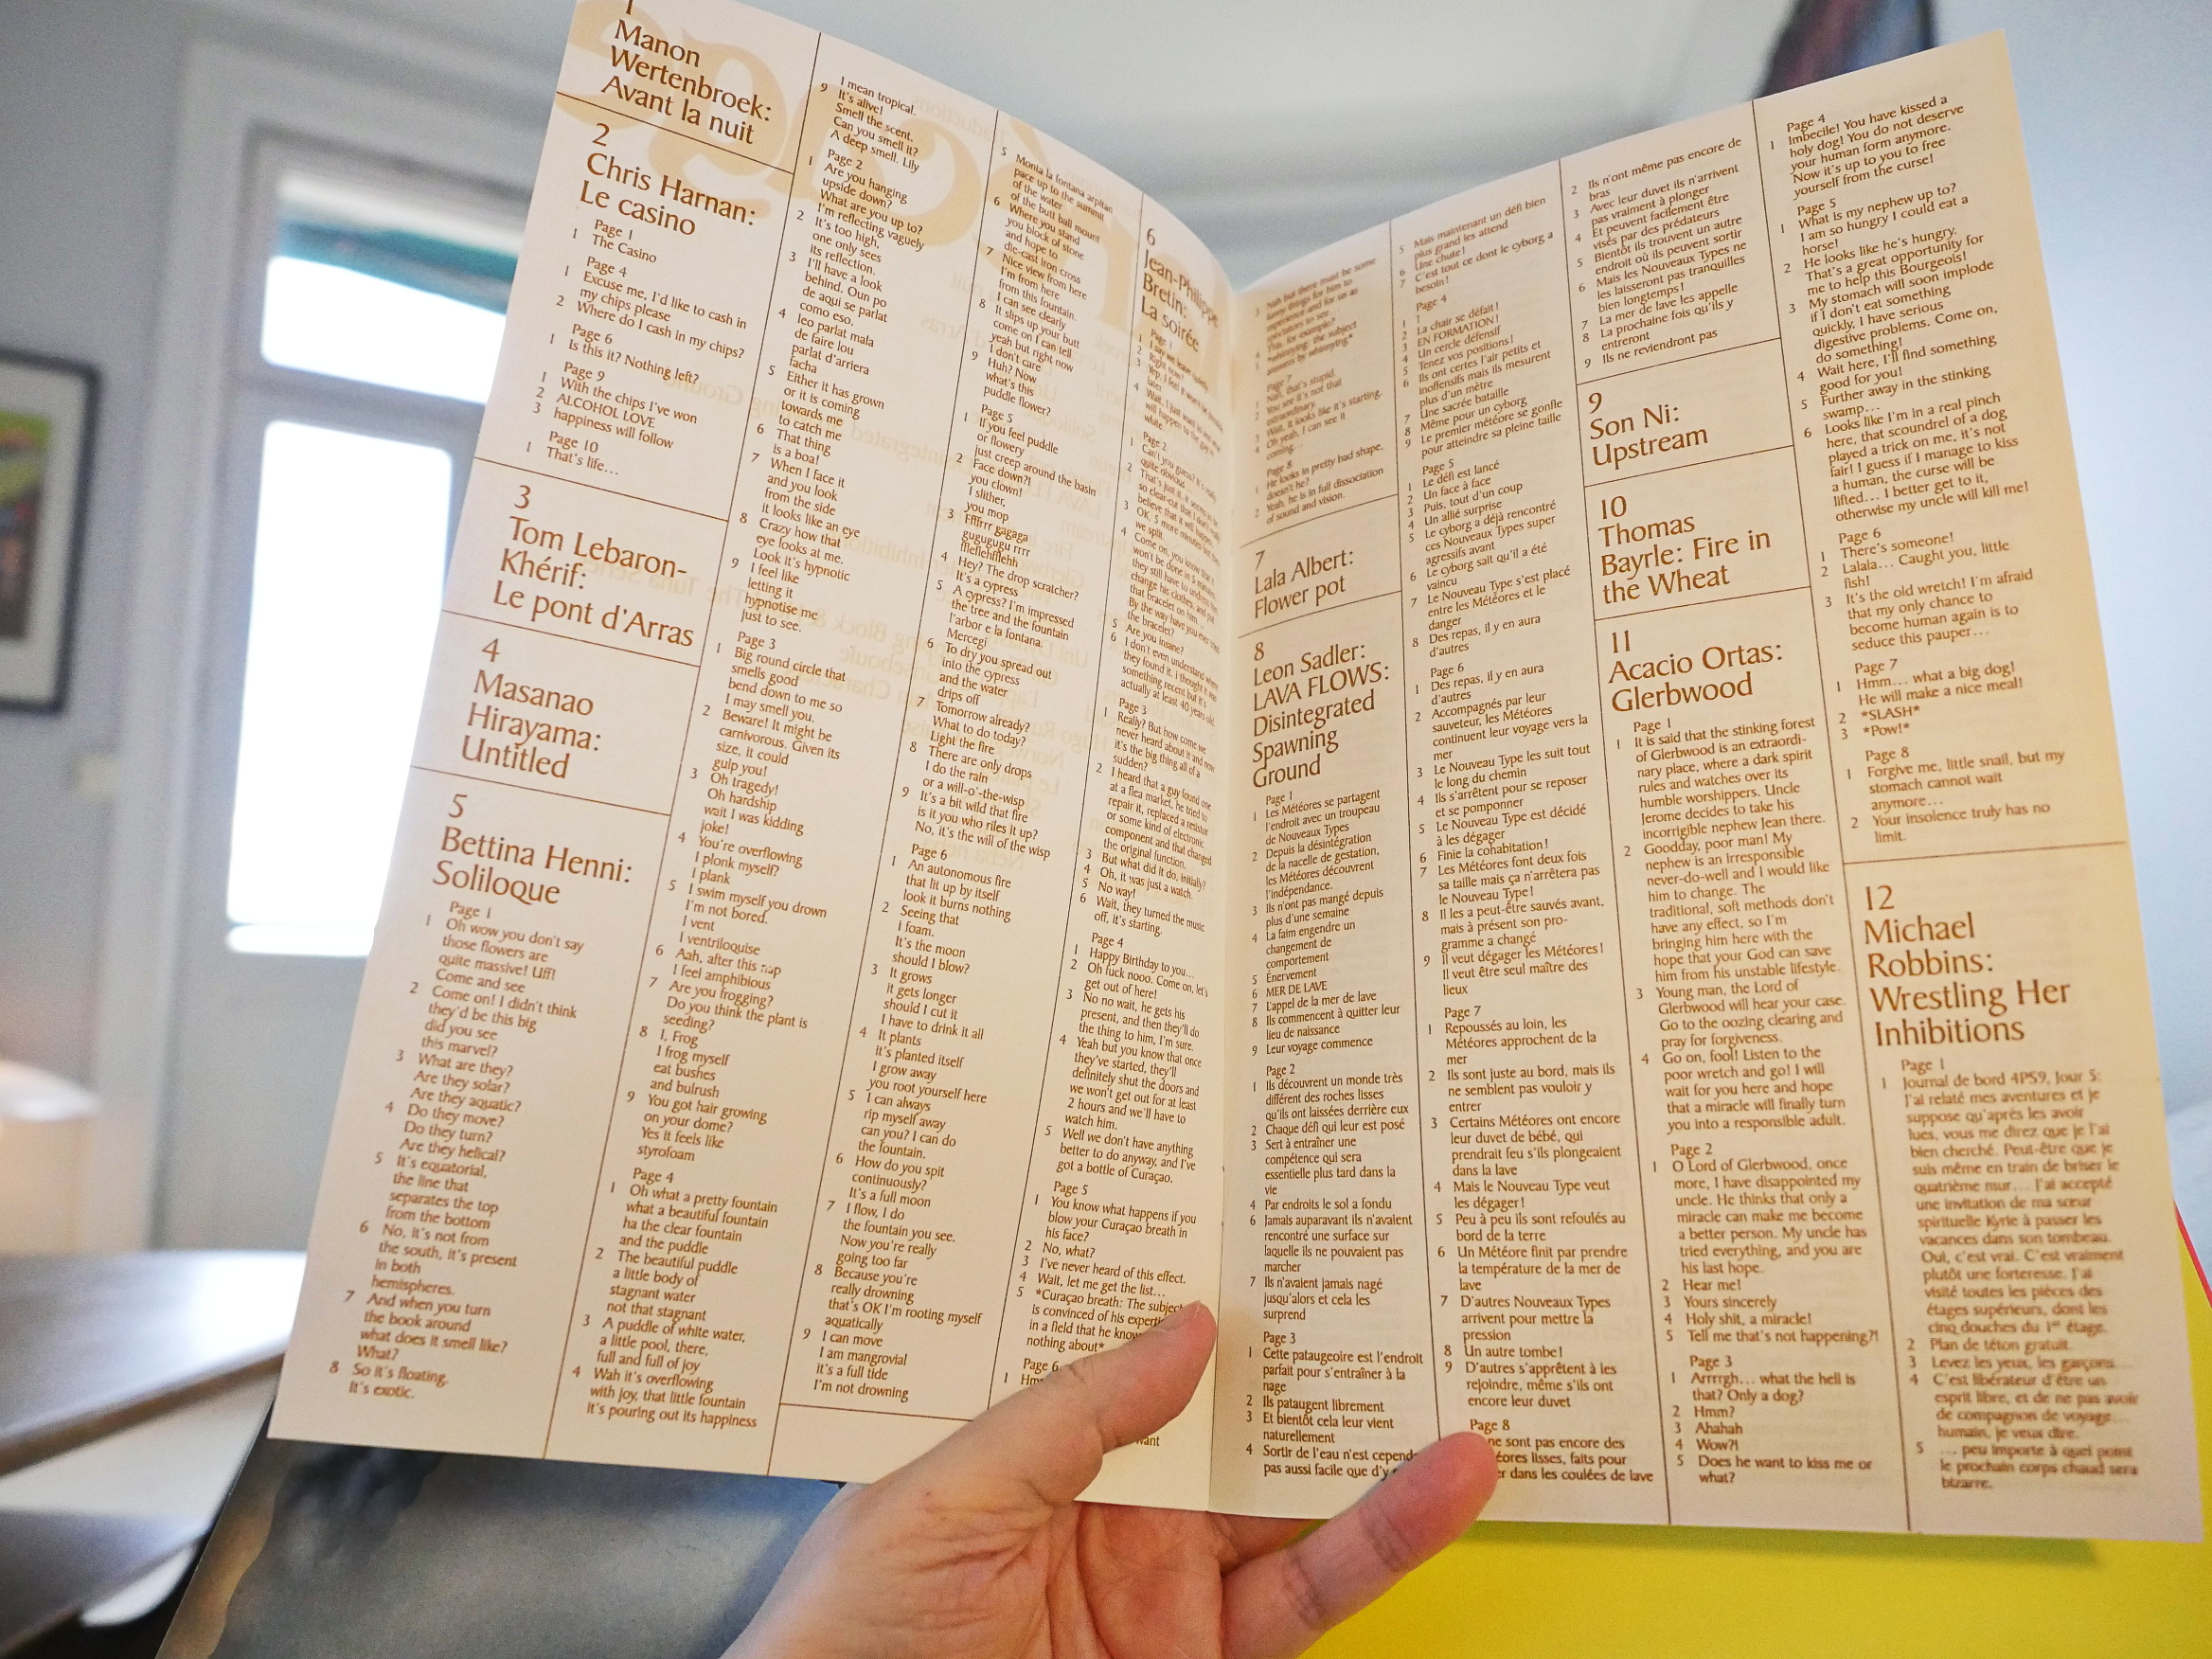 1
Manon
Wertenbroek:
Avant la nuit
2
Chris Harnan:
Le casino
Page 1
1 The Casino
Page 4
1 Excuse me, I'd like to cash in
my chips please
2 Where do I cash in my chips?
Page 6
1 Is this it? Nothing left?
Page 9
1 With the chips I've won
2 ALCOHOL LOVE
3 happiness will follow
Page 10
1 That's life...
3
Tom Lebaron-
Khérif:
Le pont d'Arras
4
Masanao
Hirayama:
Untitled
5
Bettina Henni:
Soliloque
Page 1
1 Oh wow you don't say
those flowers are
quite massive! Uff!
Come and see
2 Come on! I didn't think
they'd be this big
did you see
this marvel?
3 What are they?
Are they solar?
Are they aquatic?
4 Do they move?
Do they turn?
Are they helical?
5 It's equatorial,
the line that
separates the top
from the bottom
6 No, it's not from
the south, it's present
in both
hemispheres.
7 And when you turn
the book around
what does it smell like?
What?
8 So it's floating.
It's exotic.
I mean tropical.
9 It's alive!
Smell the scent.
Can you smell it?
A deep smell. Lily
Page 2
1 Are you hanging
upside down?
What are you up to?
I'm reflecting vaguely
2 It's too high,
one only sees
its reflection.
3 I'll have a look
behind. Oun po
de aqui se parlat
como eso.
4 leo parlat mala
de faire lou
parlat d'arriera
facha
5 Either it has grown
or it is coming
towards me
to catch me
6 That thing
is a boa!
7 When I face it
and you look
from the side
it looks like an eye
8 Crazy how that
eye looks at me.
Look it's hypnotic
9 I feel like
letting it
hypnotise me
just to see.
Page 3
1 Big round circle that
smells good
bend down to me so
I may smell you.
2 Beware! It might be
carnivorous. Given its
size, it could
gulp you!
3 Oh tragedy!
Oh hardship
wait I was kidding
joke!
4 You're overflowing
I plonk myself?
I plank
5 I swim myself you drown
I'm not bored.
I vent
I ventriloquise
6 Aah, after this nap
I feel amphibious
7 Are you frogging?
Do you think the plant is
seeding?
8 I, Frog
I frog myself
eat bushes
and bulrush
9 You got hair growing
on your dome?
Yes it feels like
styrofoam
Page 4
1 Oh what a pretty fountain
what a beautiful fountain
ha the clear fountain
and the puddle
2 The beautiful puddle
a little body of
stagnant water
not that stagnant
3 A puddle of white water,
a little pool, there,
full and full of joy
4 Wah it's overflowing
with joy, that little fountain
it's pouring out its happiness
5 Monta la fontana arpitan
pace up to the summit
of the water
of the butt ball mount
6 Where you stand
you block of stone
and hope to
die-cast iron cross
7 Nice view from here
I'm from here
from this fountain.
I can see clearly
8 It slips up your butt
come on I can tell
yeah but right now
I don't care
9 Huh? Now
what's this
puddle flower?
Page 5
1 If you feel puddle
or flowery
just creep around the basin
2 Face down?!
you clown!
I slither,
you mop
3 Ffffrrr gagaga
gugugugu rrrr
fflefflehffh
4 Hey? The drop scratcher?
It's a cypress
5 A cypress? I'm impressed
the tree and the fountain
l'arbor e la fontana.
Mercegi
6 To dry you spread out
into the cypress
and the water
drips off
7 Tomorrow already?
What to do today?
Light the fire
8 There are only drops
I do the rain
or a will-o'-the-wisp
9 It's a bit wild that fire
is it you who riles it up?
No, it's the will of the wisp
Page 6
1 An autonomous fire
that lit up by itself
look it burns nothing
2 Seeing that
I foam.
It's the moon
should I blow?
3 It grows
it gets longer
should I cut it
I have to drink it all
4 It plants
it's planted itself
I grow away
you root yourself here
5 I can always
rip myself away
can you? I can do
the fountain.
6 How do you spit
continuously?
It's a full moon
7 I flow, I do
the fountain you see.
Now you're really
going too far
8 Because you're
really drowning
that's OK I'm rooting myself
aquatically
9 I can move
I am mangrovial
it's a full tide
I'm not drowning
6
Jean-Philippe
Bretin:
La soirée
Page 1
Page 2
Page 3
1 Really? But how come we
never heard about it and now
it's the big thing all of a
sudden?
2 I heard that a guy found one
at a flea market, he tried to
repair it, replaced a resistor
or some kind of electronic
component and that changed
the original function.
3 But what did it do, initially?
4 Oh, it was just a watch.
5 No way!
6 Wait, they turned the music
off, it's starting.
Page 4
1 Happy Birthday to you...
2 Oh fuck nooo. Come on, let's
get out of here!
3 No no wait, he gets his
present, and then they'll do
the thing to him, I'm sure.
4 Yeah but you know that once
they've started, they'll
definitely shut the doors and
we won't get out for at least
2 hours and we'll have to
watch him.
5 Well we don't have anything
better to do anyway, and I've
got a bottle of Curaçao.
Page 5
1 You know what happens if you
blow your Curaçao breath in
his face?
2 No, what?
3 I've never heard of this effect.
4 Wait, let me get the list...
5 *Curaçao breath: The subject
is convinced of his
in a field that he
nothing about*
Page 6
1
Page 7
1 Nah, that's stupid.
Page 8
1 He looks in pretty bad shape,
doesn't he?
2 Yeah, he is in full dissociation
of sound and vision.
7
Lala Albert:
Flower pot
8
Leon Sadler:
LAVA FLOWS:
Disintegrated
Spawning
Ground
Page 1
1 Les Météores se partagent
l'endroit avec un troupeau
de Nouveaux Types
2 Depuis la désintégration
de la nacelle de gestation,
les Météores découvrent
l'indépendance.
3 Ils n'ont pas mangé depuis
plus d'une semaine
4 La faim engendre un
changement de
comportement
5 Énervement
6 MER DE LAVE
7 L'appel de la mer de lave
8 Ils commencent à quitter leur
lieu de naissance
9 Leur voyage commence
Page 2
1 Ils découvrent un monde très
différent des roches lisses
qu'ils ont laissées derrière eux
2 Chaque défi qui leur est posé
3 Sert à entraîner une
compétence qui sera
essentielle plus tard dans la
vie
4 Par endroits le sol a fondu
6 Jamais auparavant ils n'avaient
rencontré une surface sur
laquelle ils ne pouvaient pas
marcher
7 Ils n'avaient jamais nagé
jusqu'alors et cela les
surprend
Page 3
1 Cette pataugeoire est l'endroit
parfait pour s'entraîner à la
nage
2 Ils pataugent librement
3 Et bientôt cela leur vient
naturellement
4 Sortir de l'eau n'est
pas aussi facile que d'y
5 Mais maintenant un défi bien
plus grand les attend
6 Une chute!
7 C'est tout ce dont le cyborg a
besoin!
Page 4
1 La chair se défait!
2 EN FORMATION!
3 Un cercle défensif
4 Tenez vos positions!
5 Ils ont certes l'air petits et
6 inoffensifs mais ils mesurent
plus d'un mètre
7 Une sacrée bataille
8 Même pour un cyborg
9 Le premier météore se gonfle
pour atteindre sa pleine taille
Page 5
1 Le défi est lancé
2 Un face à face
3 Puis, tout d'un coup
4 Un allié surprise
5 Le cyborg a déjà rencontré
ces Nouveaux Types super
agressifs avant
6 Le cyborg sait qu'il a été
vaincu
7 Le Nouveau Type s'est placé
entre les Météores et le
danger
8 Des repas, il y en aura
d'autres
Page 6
1 Des repas, il y en aura
d'autres
2 Accompagnés par leur
sauveteur, les Météores
continuent leur voyage vers la
mer
3 Le Nouveau Type les suit tout
le long du chemin
4 Ils s'arrêtent pour se reposer
et se pomponner
5 Le Nouveau Type est décidé
à les dégager
6 Finie la cohabitation!
7 Les Météores font deux fois
sa taille mais ça n'arrêtera pas
le Nouveau Type!
8 Il les a peut-être sauvés avant,
mais à présent son pro-
gramme a changé
9 Il veut dégager les Météores!
Il veut être seul maître des
lieux
Page 7
1 Repoussés au loin, les
Météores approchent de la
mer
2 Ils sont juste au bord, mais ils
ne semblent pas vouloir y
entrer
3 Certains Météores ont encore
leur duvet de bébé, qui
prendrait feu s'ils plongeaient
dans la lave
4 Mais le Nouveau Type veut
les dégager!
5 Peu à peu ils sont refoulés au
bord de la terre
6 Un Météore finit par prendre
la température de la mer de
lave
7 D'autres Nouveaux Types
arrivent pour mettre la
pression
8 Un autre tombe!
9 D'autres s'apprêtent à les
rejoindre, même s'ils ont
encore leur duvet
Page 8
ne sont pas encore des
lisses, faits pour
dans les coulées de lave
2 Ils n'ont même pas encore de
bras
3 Avec leur duvet ils n'arrivent
pas vraiment à plonger
4 Et peuvent facilement être
visés par des prédateurs
5 Bientôt ils trouvent un autre
endroit où ils peuvent sortir
6 Mais les Nouveaux Types ne
les laisseront pas tranquilles
bien longtemps!
7 La mer de lave les appelle
8 La prochaine fois qu'ils y
entreront
9 Ils ne reviendront pas
9
Son Ni:
Upstream
10
Thomas
Bayrle: Fire in
the Wheat
11
Acacio Ortas:
Glerbwood
Page 1
1 It is said that the stinking forest
of Glerbwood is an extraordi-
nary place, where a dark spirit
rules and watches over its
humble worshippers. Uncle
Jerome decides to take his
incorrigible nephew Jean there.
2 Goodday, poor man! My
nephew is an irresponsible
never-do-well and I would like
him to change. The
traditional, soft methods don't
have any effect, so I'm
bringing him here with the
hope that your God can save
him from his unstable lifestyle.
3 Young man, the Lord of
Glerbwood will hear your case.
Go to the oozing clearing and
pray for forgiveness.
4 Go on, fool! Listen to the
poor wretch and go! I will
wait for you here and hope
that a miracle will finally turn
you into a responsible adult.
Page 2
1 O Lord of Glerbwood, once
more, I have disappointed my
uncle. He thinks that only a
miracle can make me become
a better person. My uncle has
tried everything, and you are
his last hope.
2 Hear me!
3 Yours sincerely
4 Holy shit, a miracle!
5 Tell me that's not happening?!
Page 3
1 Arrrrgh... what the hell is
that? Only a dog?
2 Hmm?
3 Ahahah
4 Wow?!
5 Does he want to kiss me or
what?
Page 4
1 Imbecile! You have kissed a
holy dog! You do not deserve
your human form anymore.
Now it's up to you to free
yourself from the curse!
Page 5
1 What is my nephew up to?
I am so hungry I could eat a
horse!
2 He looks like he's hungry.
That's a great opportunity for
me to help this Bourgeois!
3 My stomach will soon implode
if I don't eat something
quickly, I have serious
digestive problems. Come on,
do something!
4 Wait here, I'll find something
good for you!
5 Further away in the stinking
swamp...
6 Looks like I'm in a real pinch
here, that scoundrel of a dog
played a trick on me, it's not
fair! I guess if I manage to kiss
a human, the curse will be
lifted... I better get to it,
otherwise my uncle will kill me!
Page 6
1 There's someone!
2 Lalala... Caught you, little
fish!
3 It's the old wretch! I'm afraid
that my only chance to
become human again is to
seduce this pauper...
Page 7
1 Hmm... what a big dog!
He will make a nice meal!
2 *SLASH*
3 *Pow!*
Page 8
1 Forgive me, little snail, but my
stomach cannot wait
anymore...
2 Your insolence truly has no
limit.
12
Michael
Robbins:
Wrestling Her
Inhibitions
Page 1
1 Journal de bord 4PS9, Jour 5:
J'ai relaté mes aventures et je
suppose qu'après les avoir
lues, vous me direz que je l'ai
bien cherché. Peut-être que je
suis même en train de briser le
quatrième mur... J'ai accepté
une invitation de ma sœur
spirituelle Kyrie à passer les
vacances dans son tombeau.
Oui, c'est vrai. C'est vraiment
plutôt une forteresse. J'ai
visité toutes les pièces des
étages supérieurs, dont les
cinq douches du 1er étage.
2 Plan de téton gratuit.
3 Levez les yeux, les garçons...
4 C'est libérateur d'être un
esprit libre, et de ne pas avoir
de compagnon de voyage...
humain, je veux dire.
5 ... peu importe à quel point
le prochain corps chaud sera
bizarre.